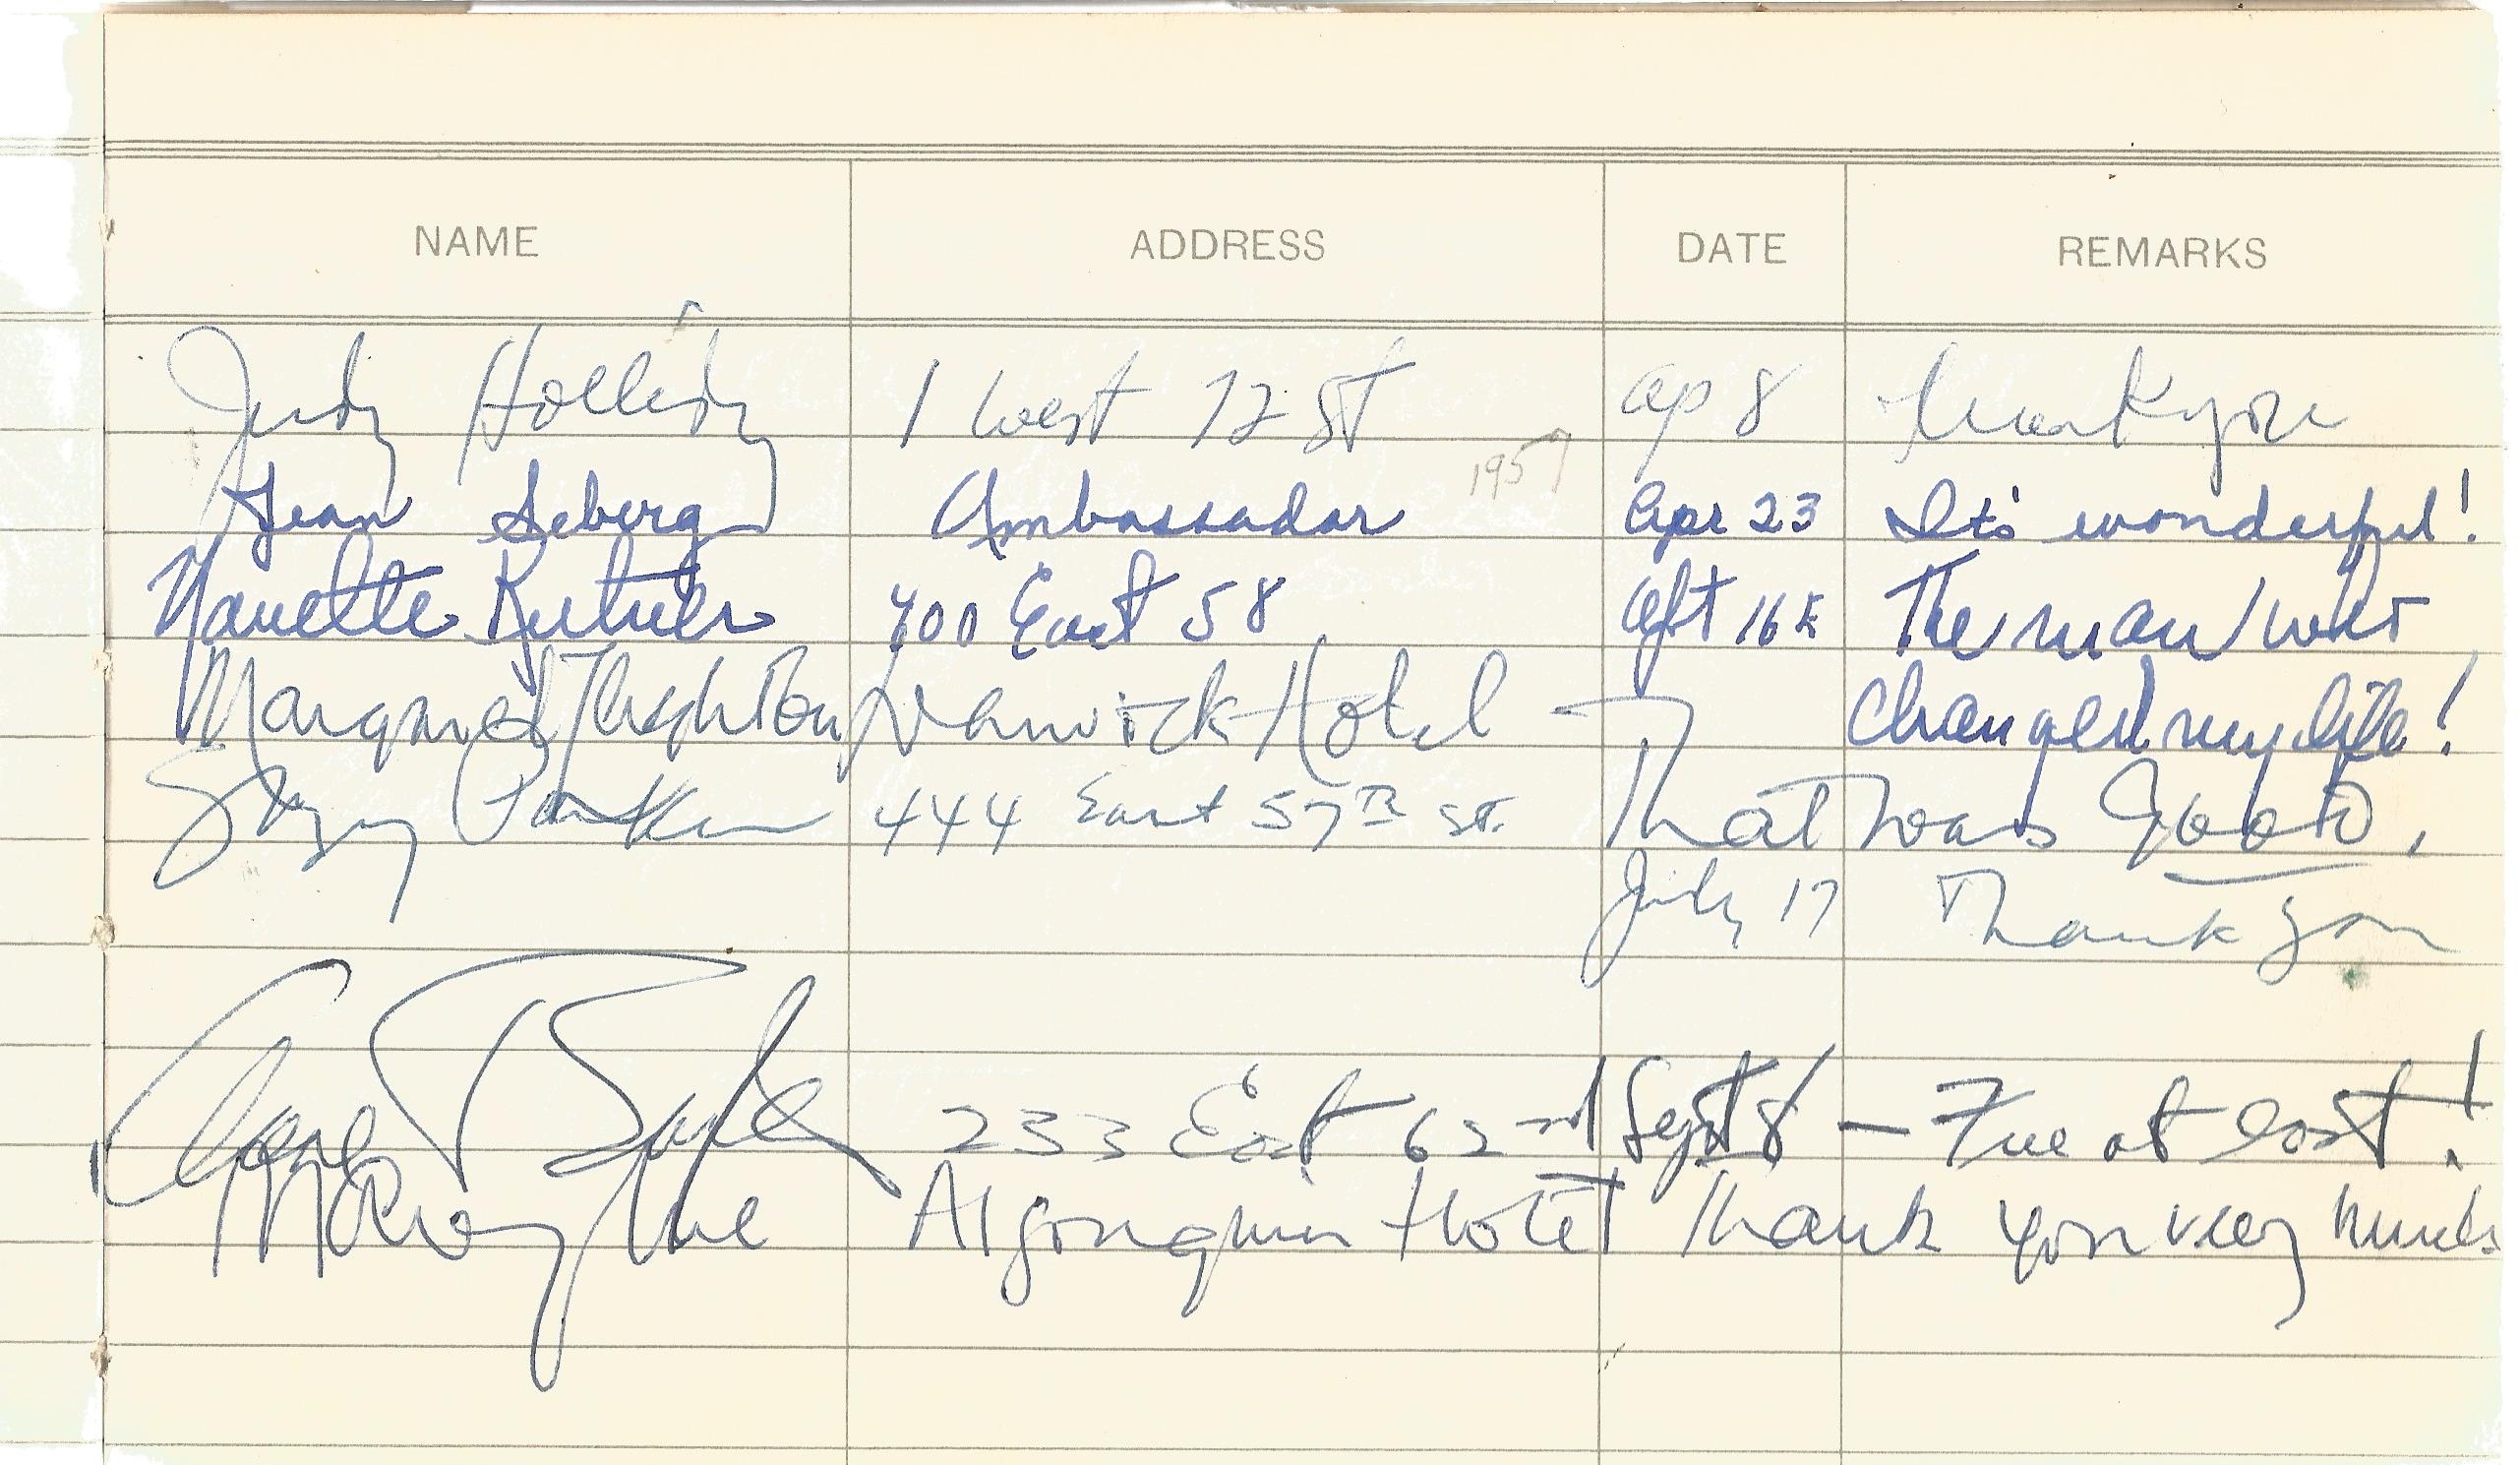 NAME ADDRESS DATE REMARKS
Judy Holliday 1 West 72 St Ap 8 Thank you
1957
Jean Seberg Ambassador Apr 23 It's wonderful!
Nanette Kutner 400 East 58 16th The man who
changed my life!
Margaret Warwick Hotel —
Suzy Parker 444 East 57th St. That was Good.
July 17 Thank you
233 East 62nd Sept 8 — Free at last!
Algonquin Hotel Thank you very much